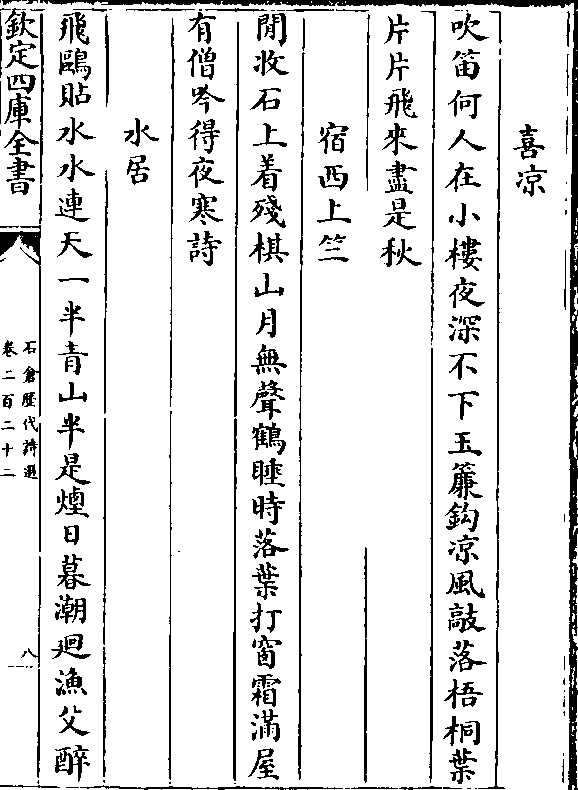 喜凉
吹笛何人在小樓夜深不下玉簾鈎凉風敲落梧桐葉
片片飛來盡是秋
宿西上竺
閒收石上着殘棋山月無聲鶴睡時落葉打窗霜滿屋
有僧吟得夜寒詩
水居
飛鷗貼水水連天一半青山半是煙日暮潮廻漁父醉
欽定四庫全書
石倉歷代詩選
卷二百二十二
八